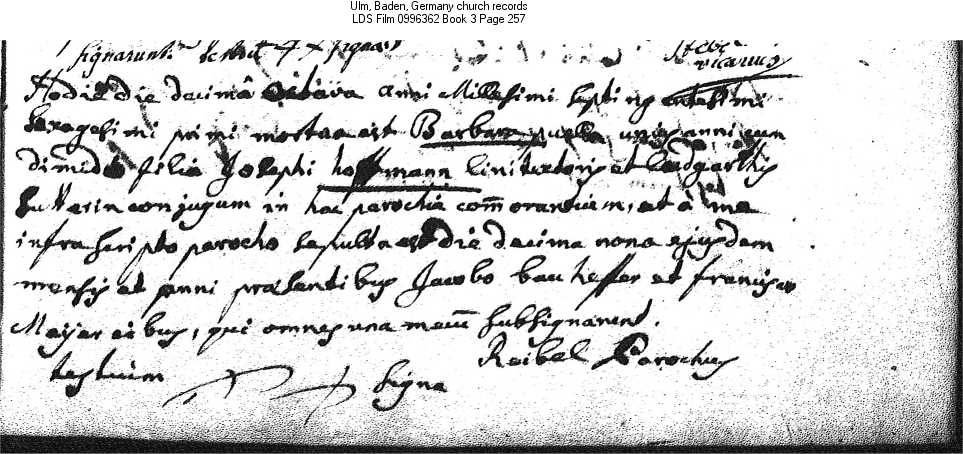 Ulm, Baden, Germany church records
LDS Film 0996362 Book 3 Page 257
signarunt
vicarius
Hodie die decima octava anni Millesimi septingentesimi
sexagesimi primi mortua est Barbara puella unius anni cum
dimidio filia Josephi hoffmann linitextoris et Ludgarthis
conjugum in hac parochia com̄orantium, et à me
infra scripto parocho sepulta est die decima nona ejusdem
mensis et anni præsentibus Jacobo et francisco
Meÿer civibus, qui omnes una mecū subsignarunt.
Reibel Parochus
testium signa